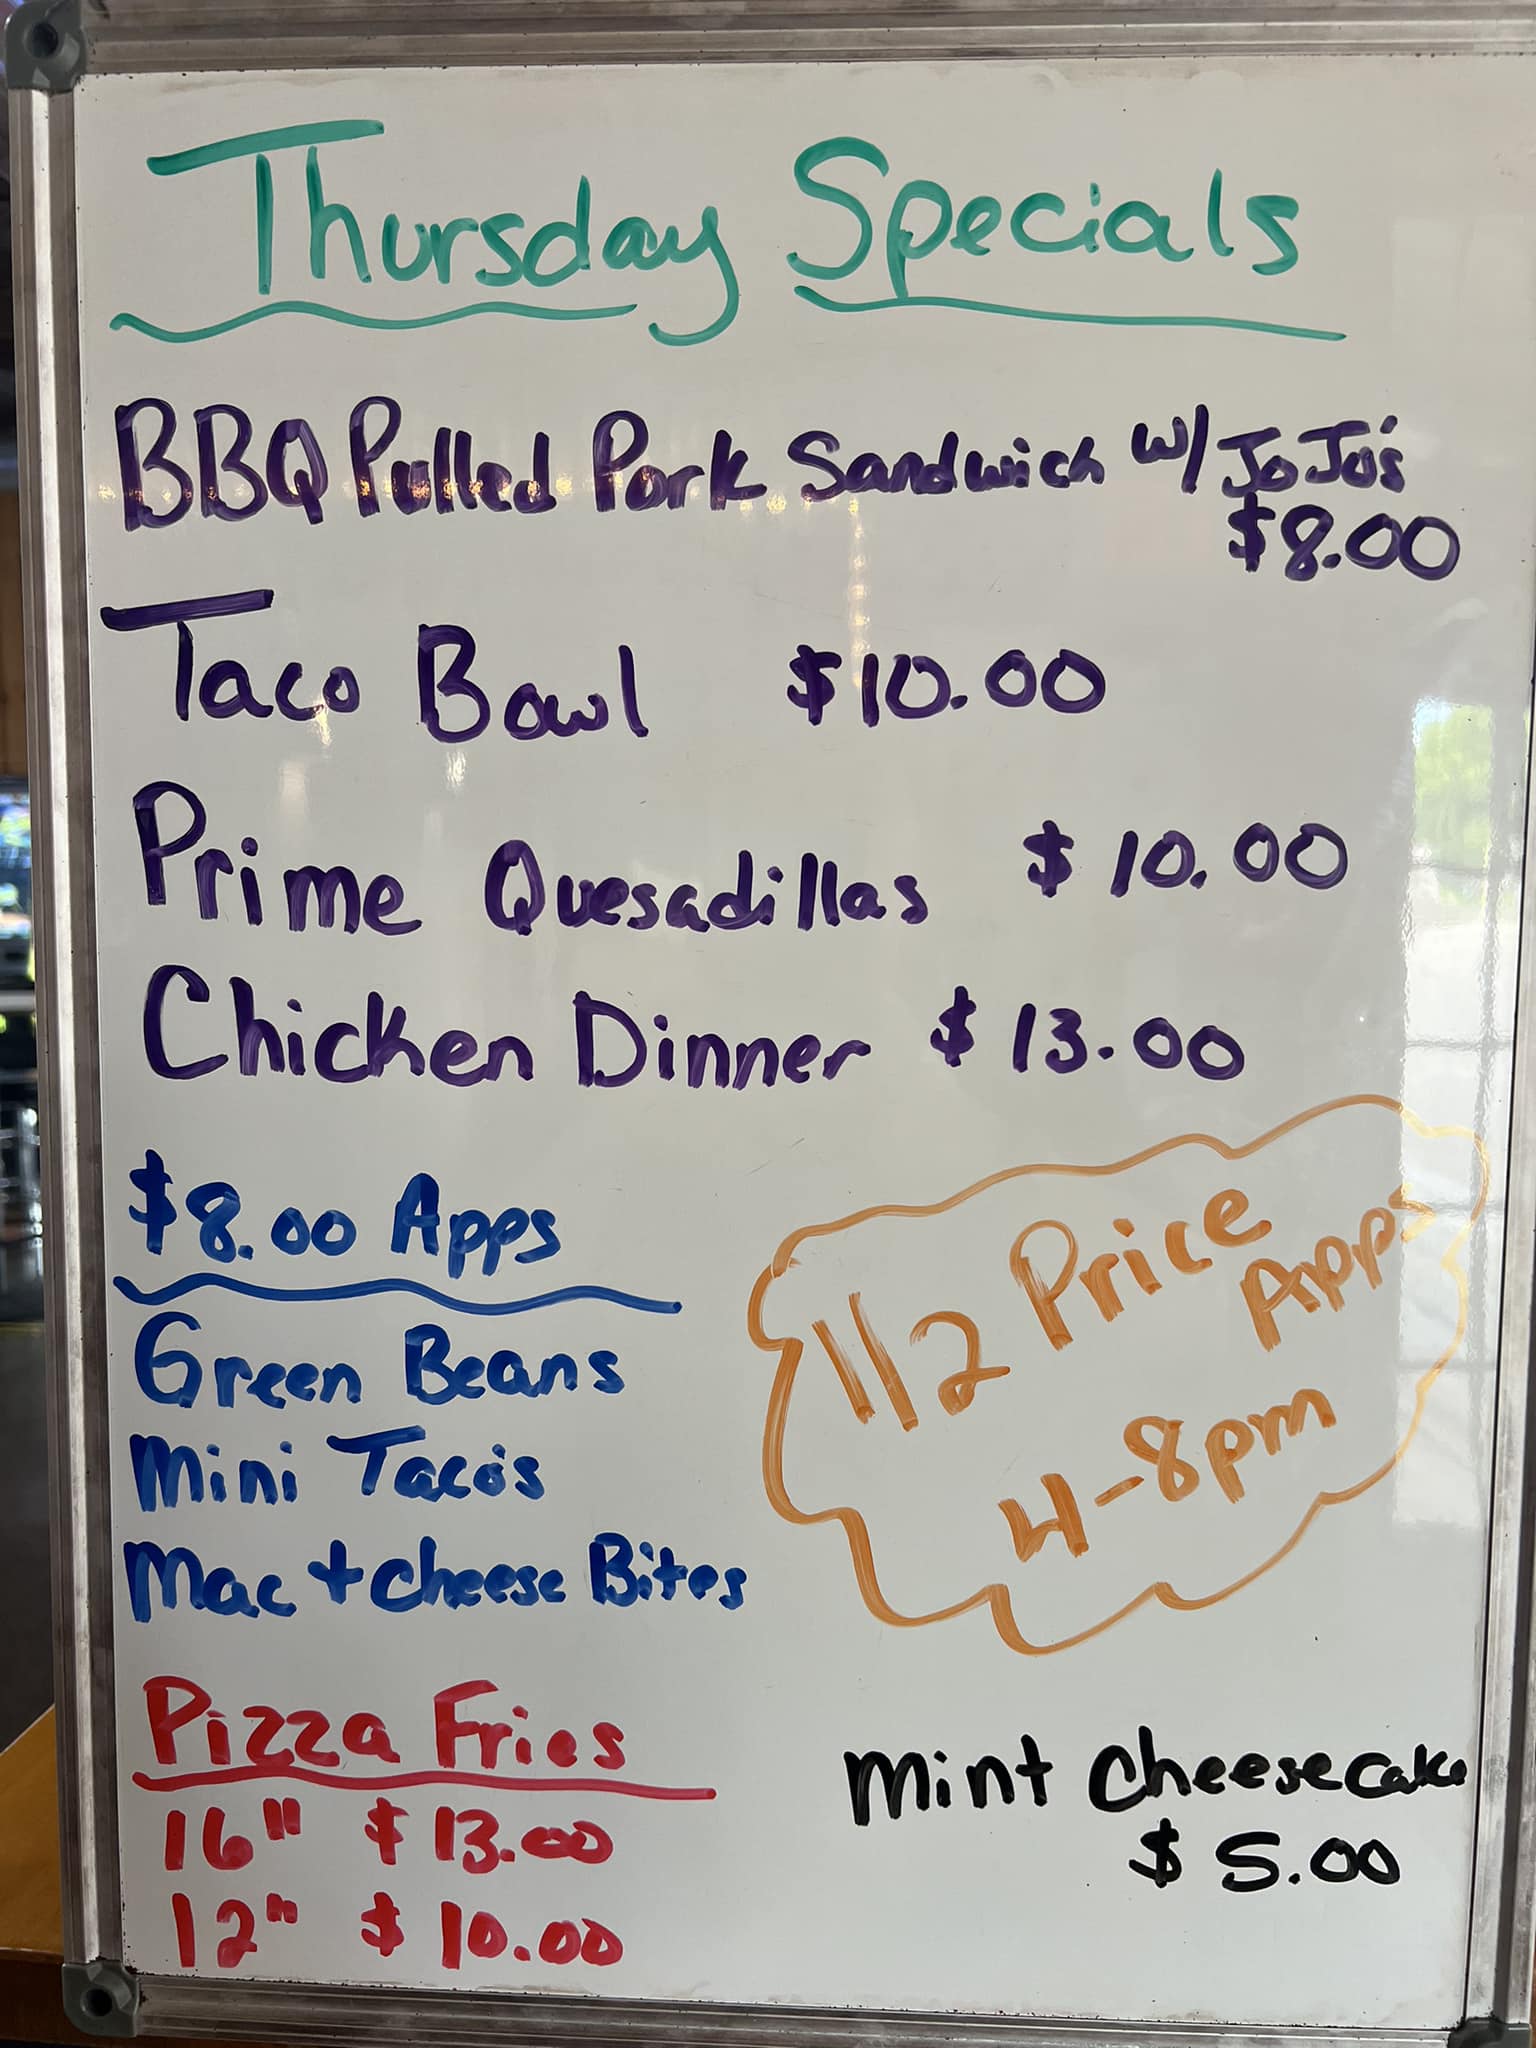 Thursday Specials
BBQ Pulled Pork Sandwich w/ JoJo's
$8.00
Taco Bowl $10.00
Prime Quesadillas $10.00
Chicken Dinner $13.00
$8.00 Apps
Green Beans
Mini Taco's
Mac + cheese Bites
1/2 Price
Apps
4-8pm
Pizza Fries
16" $13.00
12" $10.00
Mint Cheesecake
$5.00